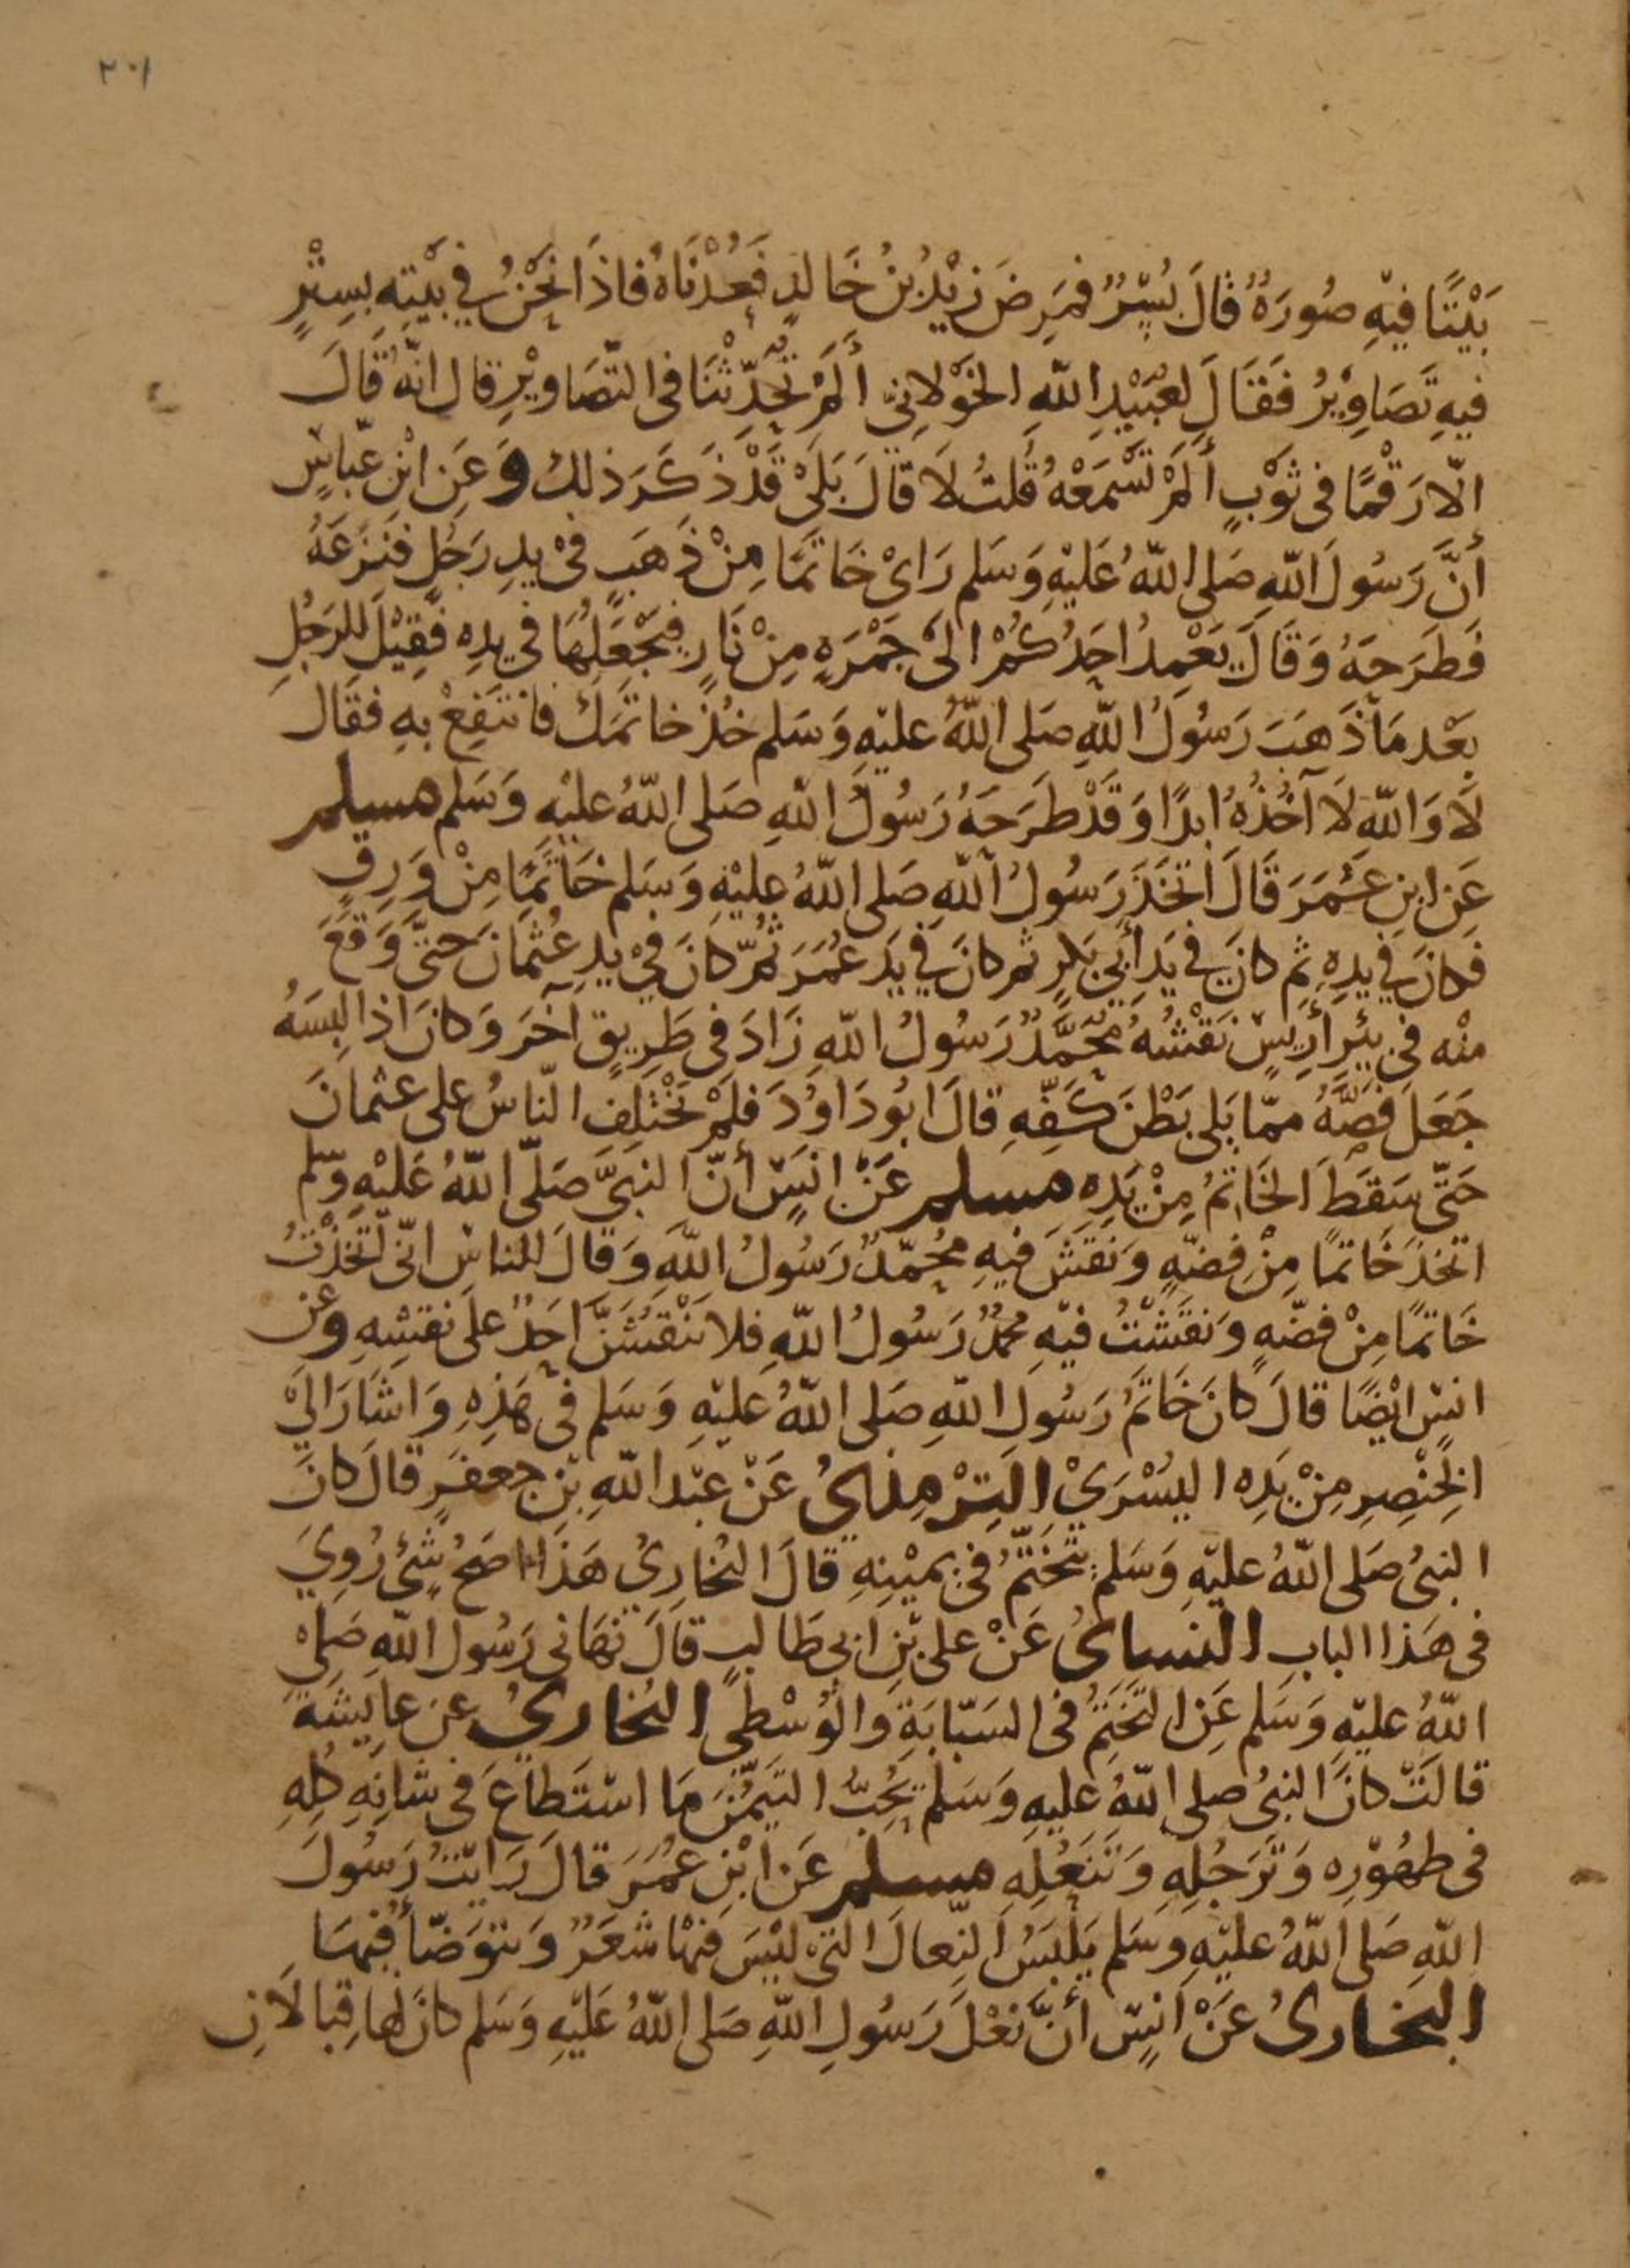 ٢٠١
بَيْتًا فِيْهِ صُورَةٌ قَالَ بُسْرٌ فمَرِضَ زَيْدُ بْنُ خَالدٍ فَعُدْنَاهُ فاذَا نَحْنُ فِي بَيْتِهِ بِسِتْرٍ
فيهِ تَصَاوِيْرُ فَقَالَ لعُبَيْدِ اللّهِ الخَوْلانِيّ أَلَمْ تُحَدِّثْنَا في التّصَاويْرِ قال انّهُ قَالَ
الّا رَقْمًا في ثوْبٍ أَلَمْ تَسْمَعْهُ قُلتُ لَا قالَ بَلَىْ قَدْ ذَكَرَ ذلكَ وَعَن ابْنِ عبّاسٍ
أَنَّ رَسُولَ اللّهِ صَلى اللّهُ عَليْهِ وَسَلم رَاىْ خَاتَمًا مِنْ ذَهَبٍ فىْ يدِ رَجُلٍ فنَزَعَهُ
فَطَرَحهُ وَقَالَ يَعْمِدُ احَدُكُمْ الىَ جَمْرَةٍ مِنْ نَارٍ فيَجْعَلُهَا في يدِهِ فَقِيْلَ للرَجُلِ
بَعْد مَا ذَهَبَ رَسُولُ اللّهِ صَلى اللّهُ عليْهِ وَسَلم خُذْ خاتمَكَ فانتَفِعْ بهِ فقَال
لَا وَاللّهِ لَا آخُذُهُ ابدًا وَقَدْ طَرَحَهُ رَسُولُ اللّهِ صَلى اللّهُ عليْهِ وَسَلم مسلم
عَنِ ابنِ عُمَرَ قَالَ اتّخَذَ رَسُولُ اللّهِ صَلى اللّهُ عليْهِ وَسَلم خَاتَمًا مِنْ وَرِقٍ
فكانَ في يدِهِ ثم كانَ في يَدِ أَبي بَكرٍ ثم كانَ في يَدِ عُمَرَ ثمّ كانَ فيْ يدِ عُثمانَ حتىّ وَقَعَ
منْه في بِئْرِ أَرِيسٍ نَقْشُهُ مُحَمَّدٌ رَسُولُ اللّهِ زَادَ في طَرِيقٍ آخَرَ وَكانَ اذا لبِسَهُ
جَعَلَ فَصَّهُ ممّا يَلى بَطْنَ كَفّهِ قالَ ابُو دَاوُدَ فلمْ يَخْتلِفِ النّاسُ على عثمانَ
حَتّى سَقَطَ الخَاتمُ مِنْ يَدِهِ مسلم عَنْ انَسٍ أَنّ النبيَّ صَلّى اللّهُ عَليْهِ وَسّلم
اتخَذَ خَاتمًا مِنْ فِضّةٍ وَنَقَشَ فيهِ مُحَمّدٌ رَسُولُ اللّهِ وَقالَ للناسِ انّى اتّخَذْتُ
خَاتمًا مِنْ فضّةٍ وَنقَشْتُ فيْهِ محمّدٌ رَسُولُ اللّهِ فلا يَنْقُشَنَّ احَدٌ علَى نقشِهِ وَعن
انسٍ ايْضًا قالَ كانَ خَاتَمُ رَسُولِ اللّهِ صَلى اللّهُ عليْهِ وَسَلم في هَذِهِ وَاشَارَ الىَ
الخِنْصِرِ مِنْ يَدِهِ اليُسْرَيْ الترْمِذيُ عَنْ عَبْد اللّهِ بْنِ جعفَرٍ قالَ كانَ
النبيُ صَلى اللّهُ عليْهِ وَسَلم يَتَخَتّمُ في يميْنِهِ قالَ البُخارِيُ هَذَا اصَحُ شَئٍ رُوِيَ
في هَذا البابِ النسائُ عَنْ على بْنِ ابي طَالبٍ قالَ نَهَاني رَسُول اللّهِ صَلى
اللّهُ عليْهِ وَسَلم عَنِ التَخَتُمِ في السَبّابَةِ وَالْوُسْطى البُخاريُ عن عايشةَ
قالَتْ كانَ النبيُ صلى اللّهُ عليهِ وَسَلم يُحِبُّ التيَمّنَ مَا اسْتَطاعَ في شَانِهِ كُلّهِ
في طهُوْرِهِ وَتَرَجُلِهِ وَتَنَعُلِهِ مسلم عَن ابْنِ عُمَرَ قالَ رَايْتُ رَسُولَ
اللّهِ صَلى اللّهُ عليْهِ وَسَلم يَلْبَسُ النّعالَ التىْ ليْسَ فيْهَا شعَرٌ وَيتَوَضّأُ فيْهَا
البخارىُ عَنْ انَسٍ أَنَّ نَعْلَ رَسُولِ اللّهِ صَلى اللّهُ عَليْهِ وَسَلم كانَ لهَا قِبَالَانِ